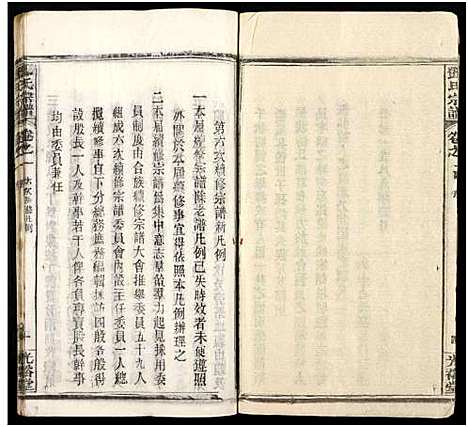 第六次續修宗譜新凡例
一本屆續修宗譜除老譜凡例已失時效者未便遵照
外關於本屆續修事宜得依照本凡例辦理之
二本屆續修宗譜爲集中意志羣策羣力起見採用委
員制度由合族續修宗譜大會推舉委員五十九人
組成六次續修宗譜委員會內設主任委員一人總
攬續修事宜下分總務撫務編輯謄錄各股每股得
設股長一人及幹事若干人俾各負專責股長幹事
均由委員兼任
三
氏宗譜
卷之一
凡例
一
光裕堂
氏宗譜
卷之一
光裕堂